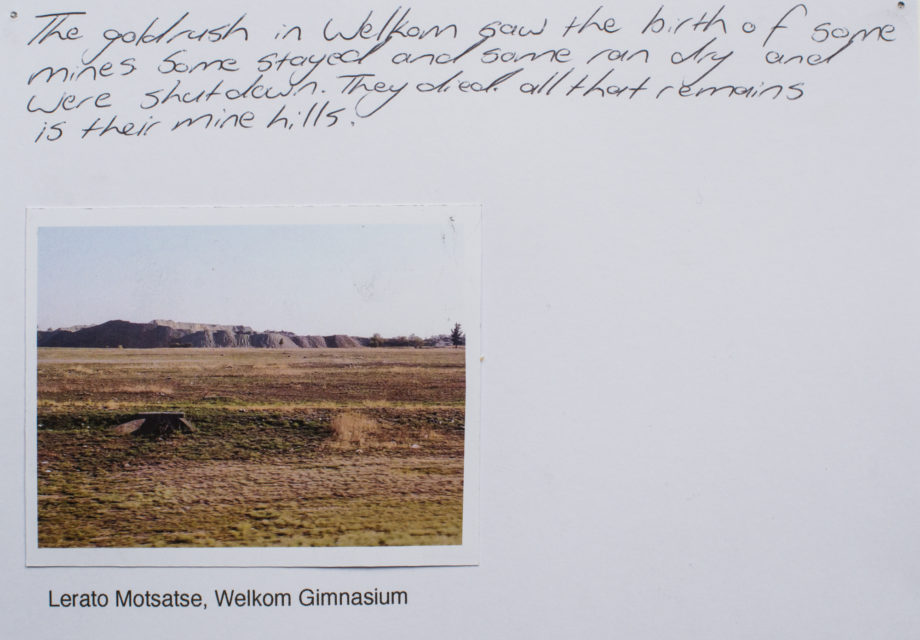 The goldrush in Welkom saw the birth of some
mines Some stayed and some ran dry and
were shutdown. They died. all that remains
is their mine hills.
Lerato Motsatse, Welkom Gimnasium